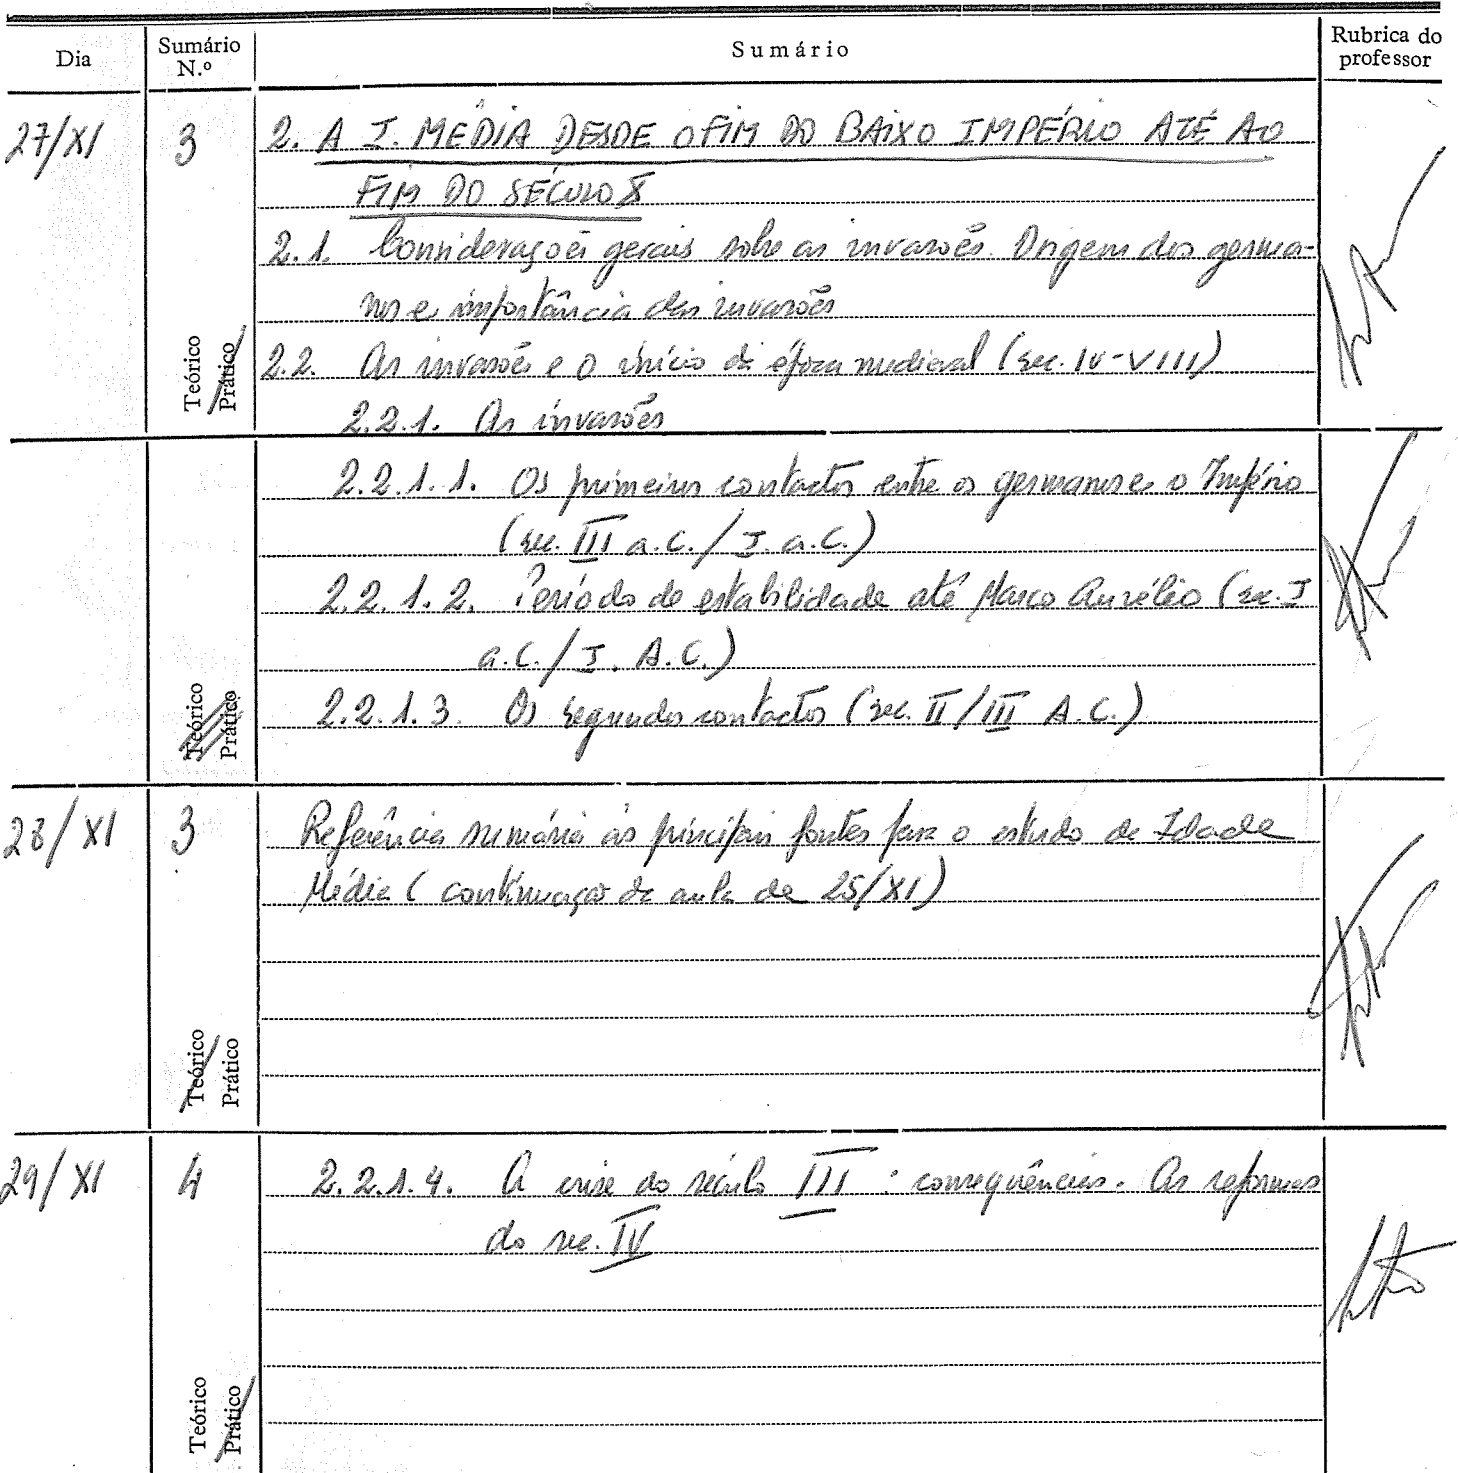 Dia Sumário N.º Sumário Rubrica do professor
27/XI 3 2. A I. MÉDIA DESDE O FIM DO BAIXO IMPÉRIO ATÉ AO
FIM DO SÉCULO X
2.1. Considerações gerais sobre as invasões. Origem dos germa-
nos e importância das invasões
Teórico Prático 2.2. As invasões e o início da época medieval (sec. IV-VIII)
2.2.1. As invasões
2.2.1.1. Os primeiros contactos entre os germanos e o Império
(sec. III a.C./I a.C.)
2.2.1.2. Período de estabilidade até Marco Aurélio (sec. I
a.C./I. A.C.)
Teórico Prático 2.2.1.3. Os segundos contactos (sec. II/III A.C.)
28/XI 3 Referência sumária às principais fontes para o estudo da Idade
Média (continuação da aula de 25/XI)
Teórico Prático
29/XI 4 2.2.1.4. A crise do século III: consequências. As reformas
do sec. IV
Teórico Prático